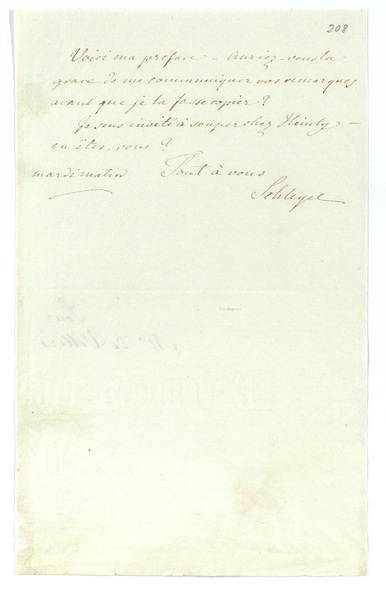 208
Voici ma préface – Auriez-vous la
grace de me communiquer vos remarques
avant que je la fasse copier?
Je suis invité à souper chez –
en êtes-vous?
mardi matin Tout à vous
Schlegel